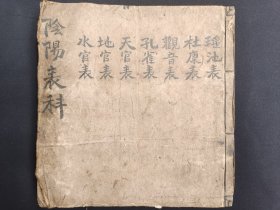 瑶池表
杜康表
觀音表
孔雀表
天官表
地官表
水官表
陰陽表科